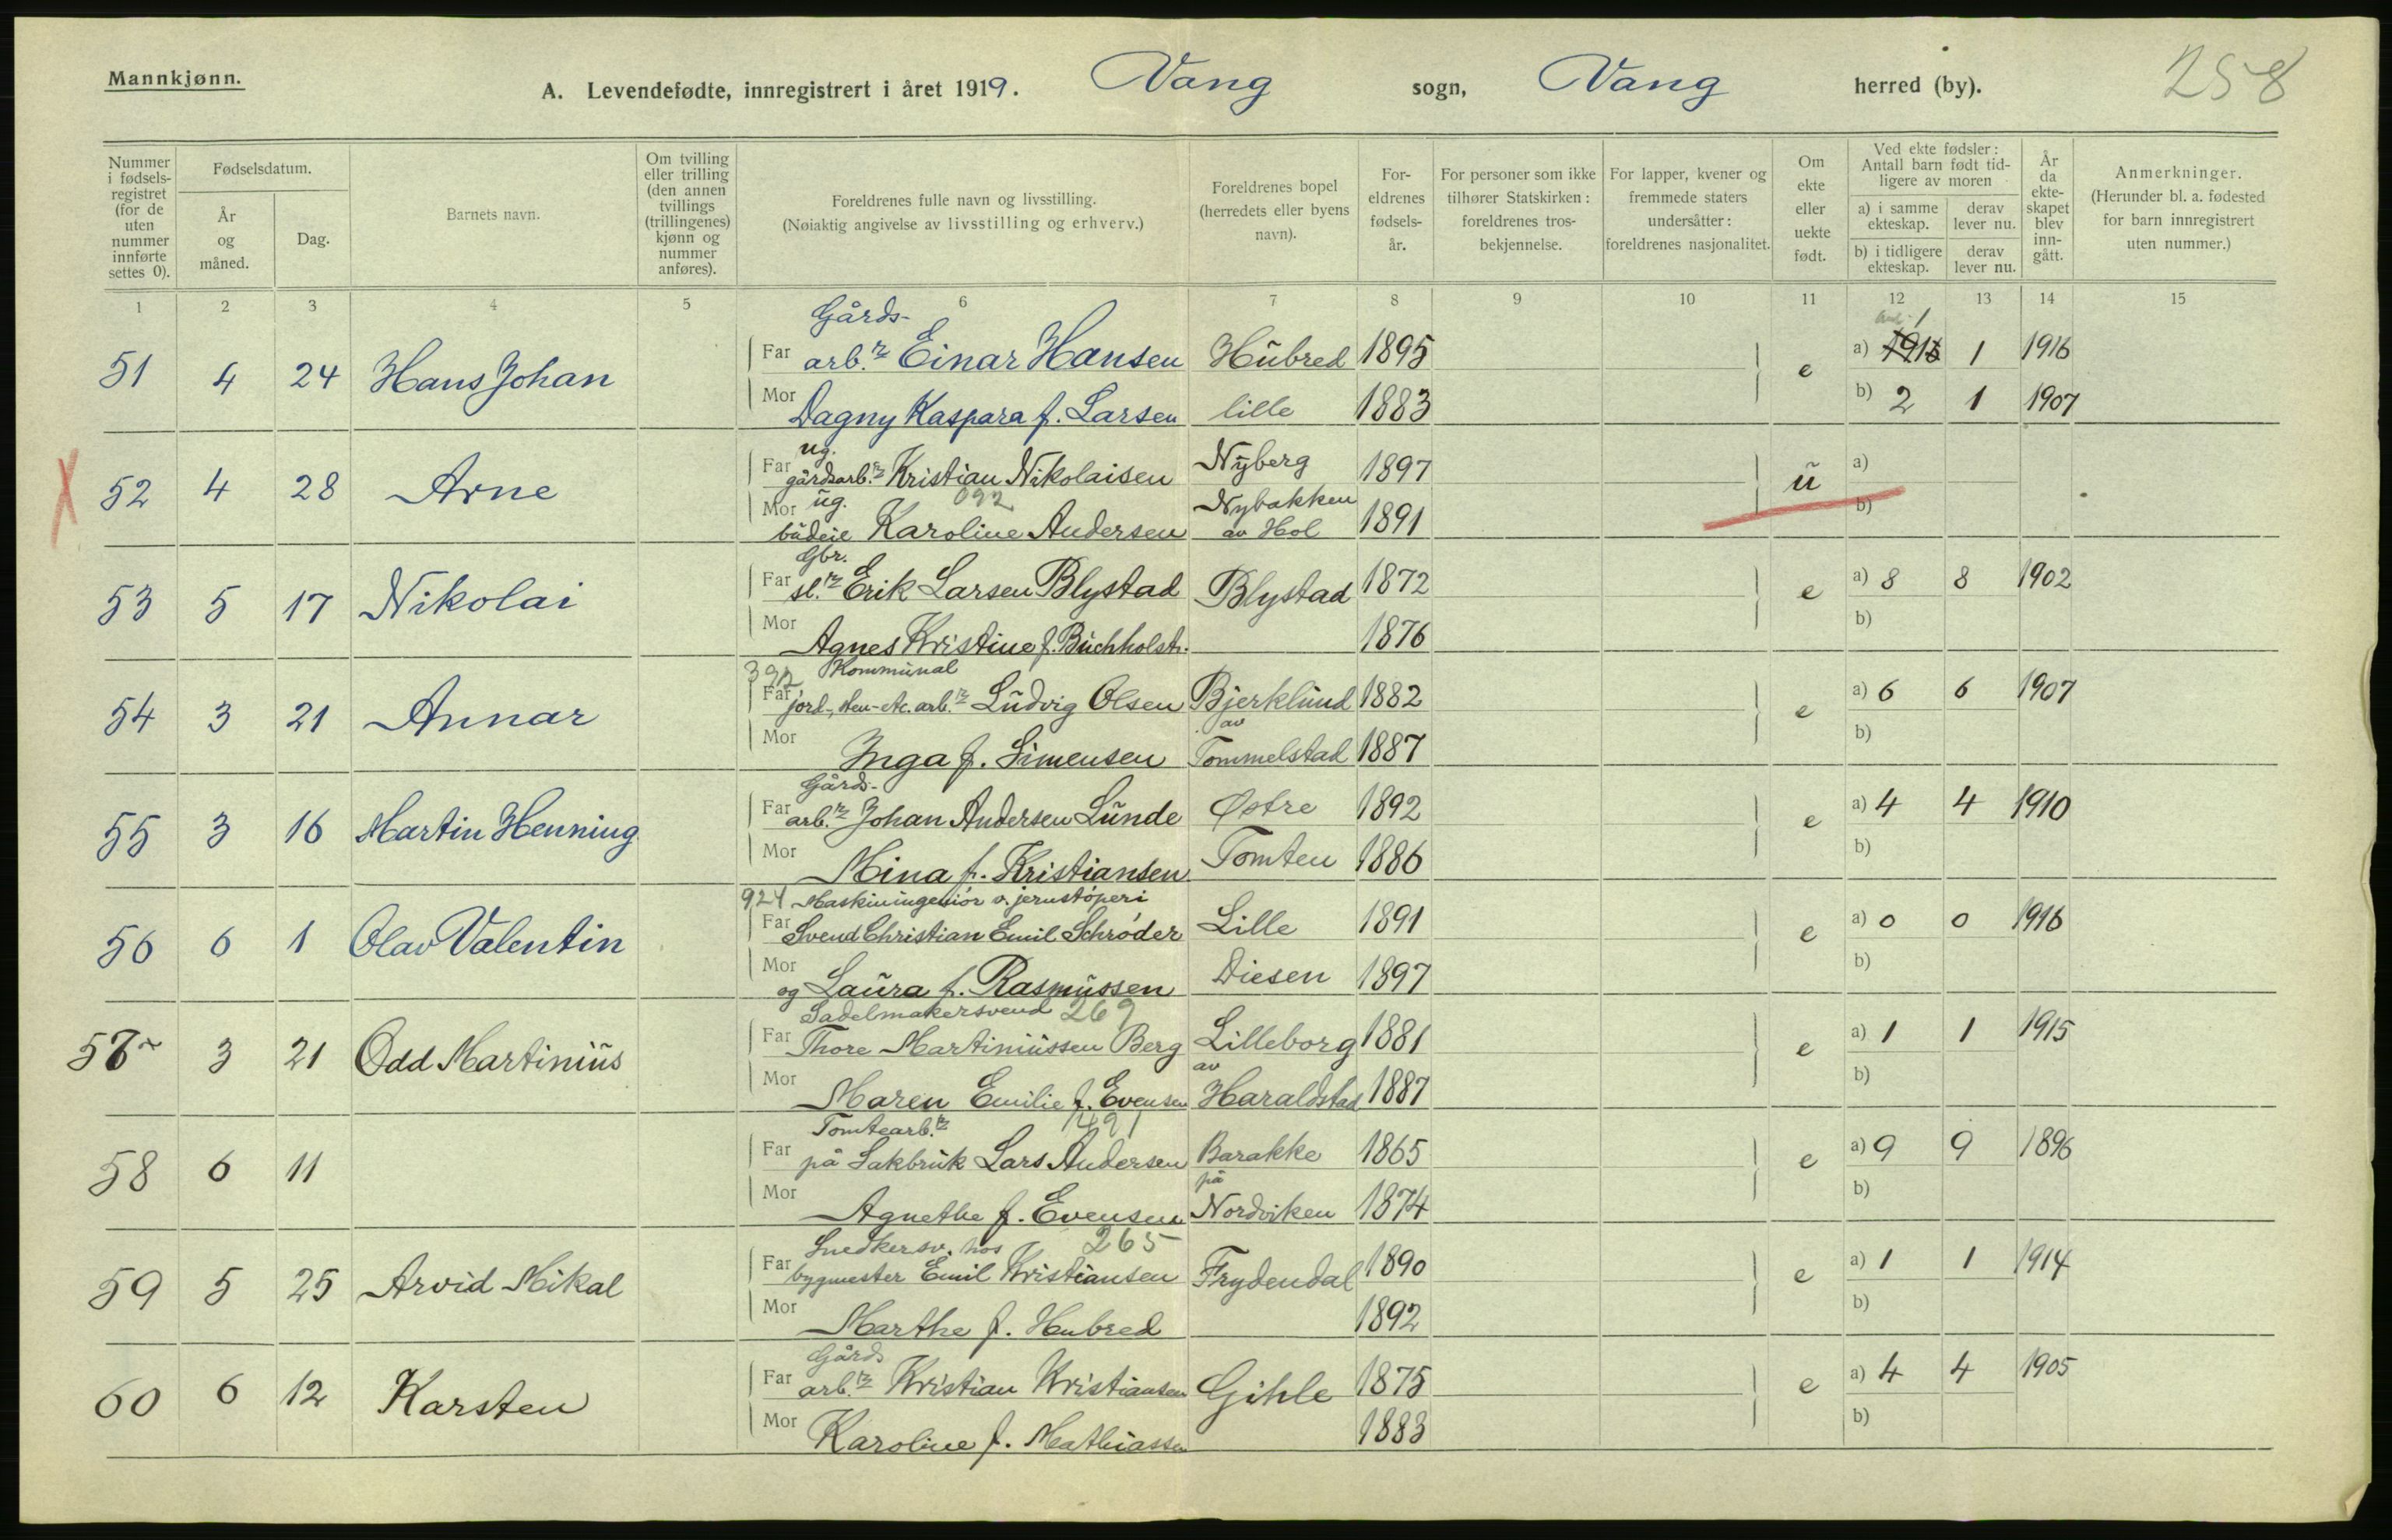 Mannkjønn.
A. Levendefødte, innregistrert i året 1919. Vang sogn, Vang herred (by). 258
Nummer i fødsels-registret (for de uten nummer innførte settes 0).
Fødselsdatum.
År og måned.
Dag.
Barnets navn.
Om tvilling eller trilling (den annen tvillings (trillingenes) kjønn og nummer anføres).
Foreldrenes fulle navn og livsstilling.
(Nøiaktig angivelse av livsstilling og erhverv.)
Foreldrenes bopel (herredets eller byens navn).
For-eldrenes fødsels-år.
For personer som ikke tilhører Statskirken: foreldrenes tros-bekjennelse.
For lapper, kvener og fremmede staters undersåtter: foreldrenes nasjonalitet.
Om ekte eller uekte født.
Ved ekte fødsler: Antall barn født tid-ligere av moren
a) i samme ekteskap.
derav lever nu.
b) i tidligere ekteskap.
derav lever nu.
År da ekte-skapet blev inn-gått.
Anmerkninger.
(Herunder bl. a. fødested for barn innregistrert uten nummer.)
1 2 3 4 5 6 7 8 9 10 11 12 13 14 15
Gårds- 1
51 4 24 Hans Johan Far arb.r Einar Hansen Hubred 1895 e a) 1916 1 1916
Mor Dagny Kaspara f. Larsen lille 1883 b) 2 1 1907
ug.
X 52 4 28 Arne Far gårdsarb.r Kristian Nikolaisen Nyberg 1897 u a)
ug. 092 Nybakken
Mor budeie Karoline Andersen av Hol 1891 b)
Gbr.
53 5 17 Nikolai Far sl.r Erik Larsen Blystad Blystad 1872 e a) 8 8 1902
Mor Agnes Kristine f. Buchholst. 1876 b)
392 Kommunal
54 3 21 Annar Far jord-, sten- etc. arb.r Ludvig Olsen Bjerklund 1882 e a) 6 6 1907
av
Mor Inga f. Simensen Tommelstad 1887 b)
Gårds-
55 3 16 Martin Henning Far arb.r Johan Andersen Lunde Østre 1892 e a) 4 4 1910
Mor Mina f. Kristiansen Tomten 1886 b)
924 Maskiningeniør v. jernstøperi
56 6 1 Olav Valentin Far Svend Christian Emil Schrøder Lille 1891 e a) 0 0 1916
Mor og Laura f. Rasmussen Diesen 1897 b)
Sadelmakersvend 269
57 3 21 Odd Martinius Far Thore Martiniussen Berg Lilleborg 1881 e a) 1 1 1915
av
Mor Maren Emilie f. Evensen Haraldstad 1887 b)
Tomtearb.r 491
58 6 11 Far på Sakbruk Lars Andersen Barakke 1865 e a) 9 9 1896
på
Mor Agnethe f. Evensen Nordviken 1874 b)
Snedkersv. hos 265
59 5 25 Arvid Mikal Far bygmester Emil Kristiansen Frydendal 1890 e a) 1 1 1914
Mor Marthe f. Hubred 1892 b)
Gårds
60 6 12 Karsten Far arb.r Kristian Kristiansen Gihle 1875 e a) 4 4 1905
Mor Karoline f. Mathiassen 1883 b)